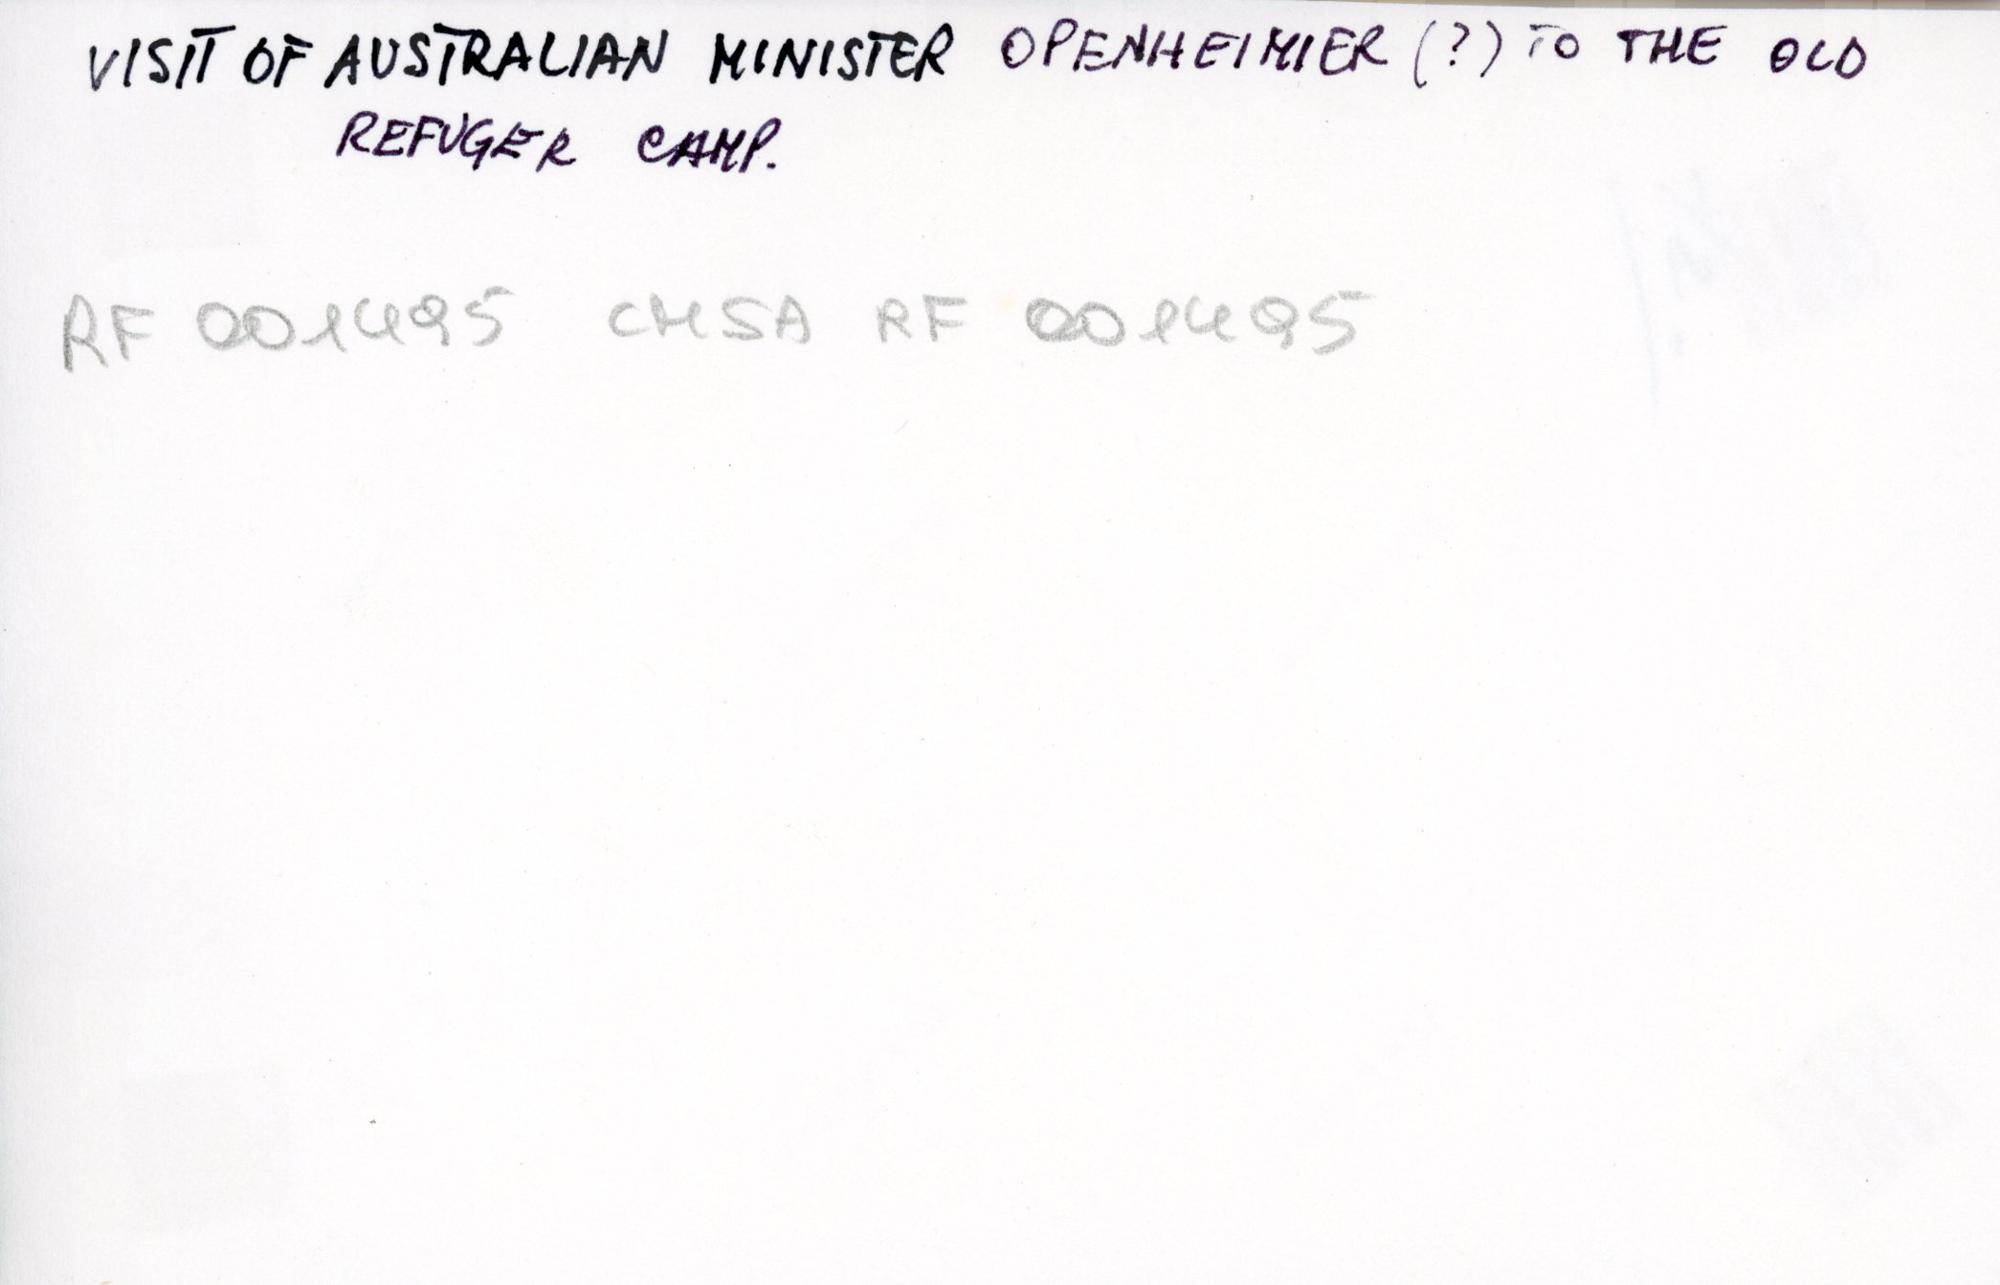 VISIT OF AUSTRALIAN MINISTER OPENHEIMIER (?) TO THE OLD
REFUGER CAMP.
RF 001495 CMSA RF 001495